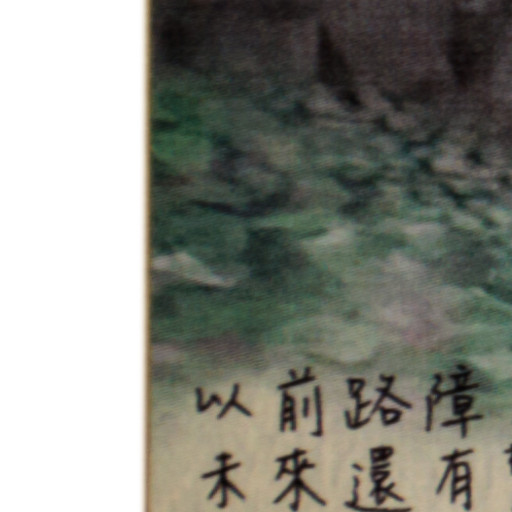 以前路障
未來還有